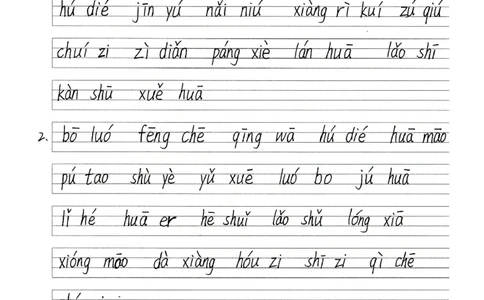 hú dié jīn yú nǎi niú xiàng rì kuí zú qiú
chuí zi zì diǎn páng xiè lán huā lǎo shī
kàn shū xuě huā
2. bō luó fēng chē qīng wā hú dié huā māo
pú tao shù yè yǔ xuē luó bo jú huā
lǐ hé huā er hē shuǐ lǎo shǔ lóng xiā
xióng māo dà xiàng hóu zi shī zi qì chē